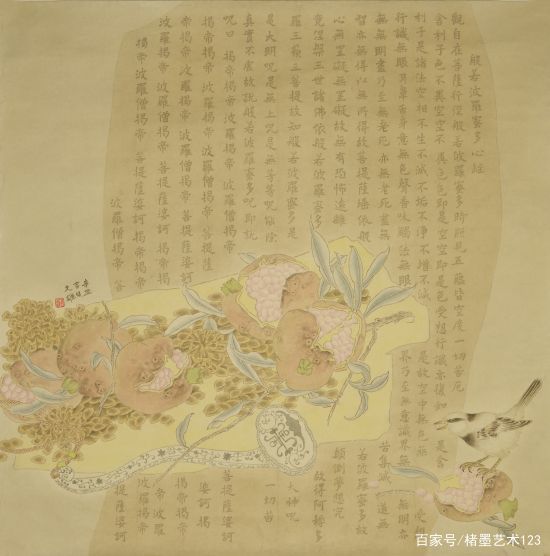 般若波羅蜜多心経
觀自在菩薩行深般若波羅蜜多時照見五蘊皆空度一切苦厄
舍利子色不異空空不異色色即是空空即是色受想行識亦復如是舍
利子是諸法空相不生不滅不垢不淨不增不減是故空中無色無受想
行識無眼耳鼻舌身意無色聲香味觸法無眼界乃至無意識界無明亦
無無明盡乃至無老死亦無老死盡無苦集滅道無
智亦無得以無所得故菩提薩埵依般若波羅蜜多故
心無罣礙無罣礙故無有恐怖遠離顛倒夢想究
竟涅槃三世諸佛依般若波羅蜜多故得阿耨多
羅三藐三菩提故知般若波羅蜜多是大神呪
是大明呪是無上呪是無等等呪能除一切苦
真實不虛故說般若波羅蜜多呪即說
呪曰揭帝揭帝波羅揭帝波羅僧揭帝菩提薩婆訶
揭帝揭帝波羅揭帝波羅僧揭帝菩提薩婆訶揭
帝揭帝波羅揭帝波羅僧揭帝菩提薩婆訶揭帝揭帝
波羅揭帝波羅僧揭帝菩提薩婆訶揭帝揭帝帝波羅
揭帝波羅僧揭帝菩提薩婆訶揭帝揭帝波羅揭帝
波羅僧揭帝菩提薩婆訶
百家号/楮墨艺术123